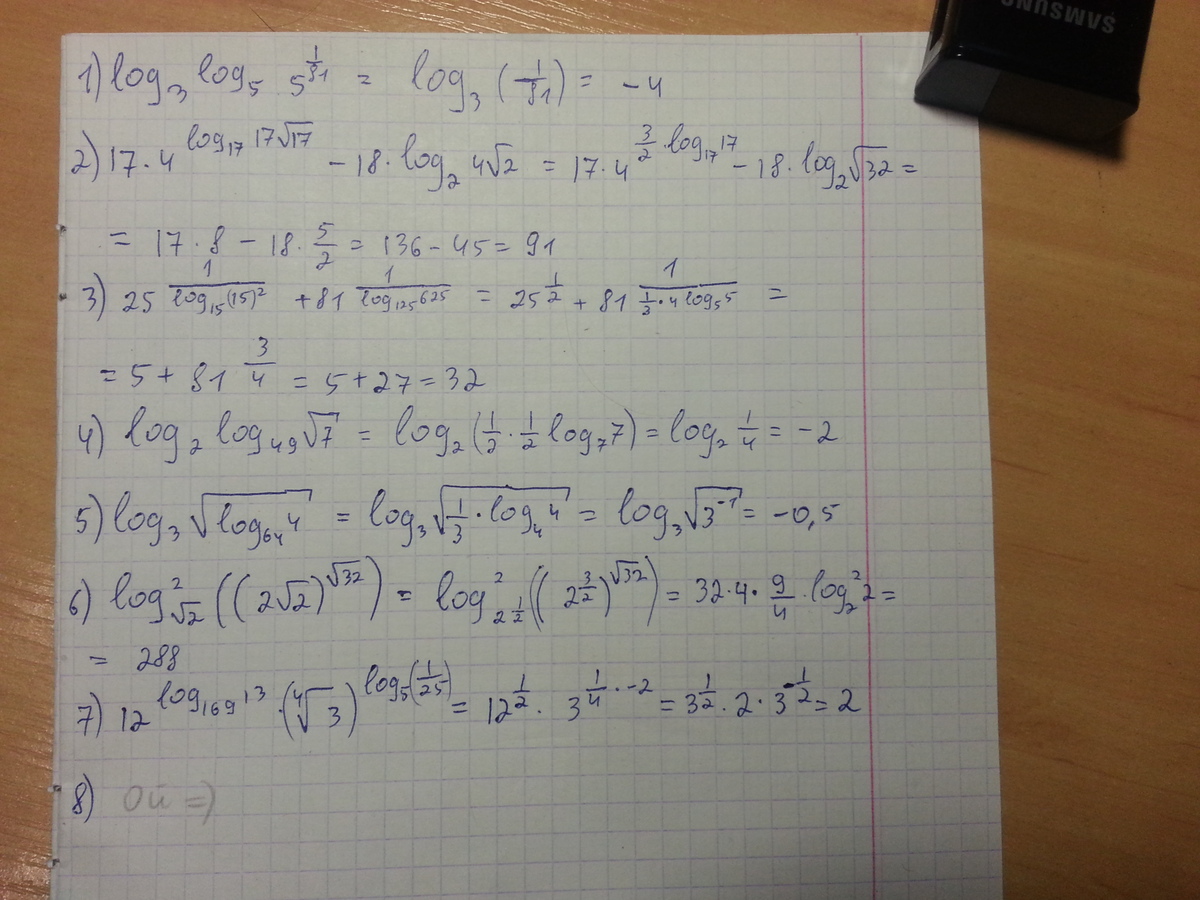 SAMSUNG
1) log₃ log₅ 5^(1/81) = log₃ (1/81) = -4
2) 17·4^(log₁₇ 17√17) - 18·log₂ 4√2 = 17·4^(3/2·log₁₇17) - 18·log₂√32 =
= 17·8 - 18·5/2 = 136 - 45 = 91
3) 25^(1/log₁₅(15)²) + 81^(1/log₁₂₅625) = 25^(1/2) + 81^(1/(1/3·4log₅5)) =
= 5 + 81^(3/4) = 5 + 27 = 32
4) log₂ log₄₉√7 = log₂(1/2·1/2 log₇7) = log₂ 1/4 = -2
5) log₃ √(log₆₄4) = log₃√(1/3·log₄4) = log₃√(3⁻¹) = -0,5
6) log²_(√2) ((2√2)^(√32)) = log²_(2^(1/2)) ((2^(3/2))^(√32)) = 32·4·9/4·log₂²2 =
= 288
7) 12^(log₁₆₉13)·(⁴√3)^(log₅(1/25)) = 12^(1/2)·3^(1/4·-2) = 3^(1/2)·2·3^(-1/2) = 2
8) Ой =)